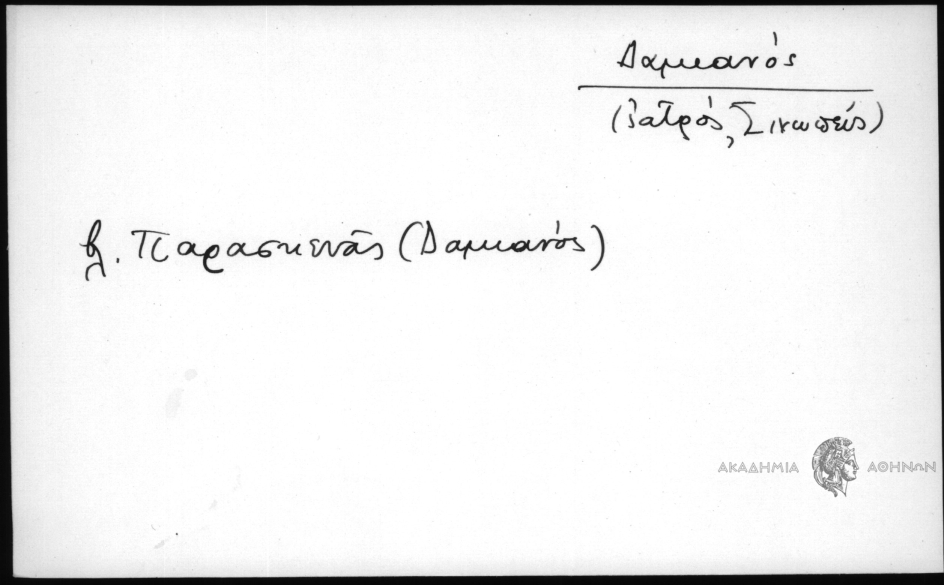 Δαμιανός
(ἰατρός, Σινωπεύς)
βλ. Παρασκευᾶς (Δαμιανός)
ΑΚΑΔΗΜΙΑ ΑΘΗΝΩΝ